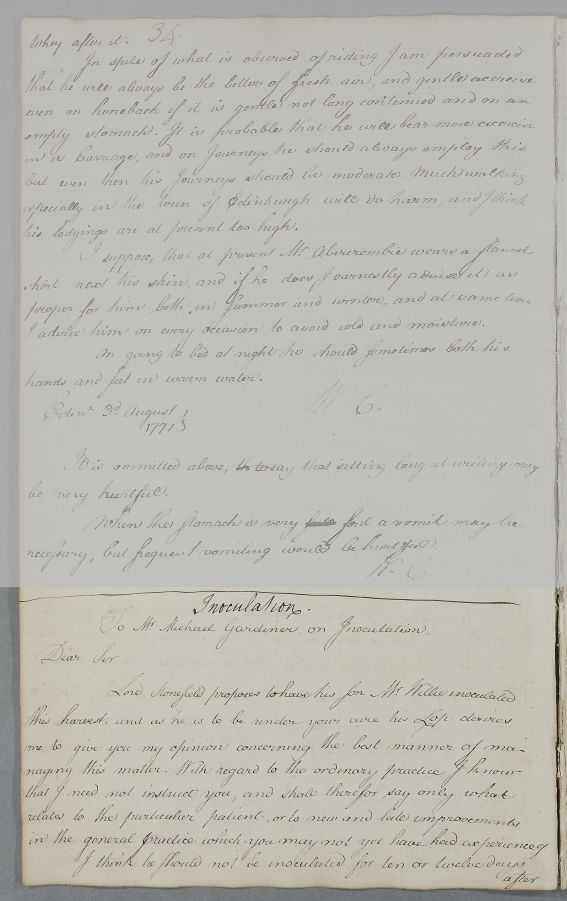 whey after it. 34.
In spite of what is observed of riding I am persuaded
that he will always be the better of fresh air, and gentle exercise
even on horseback if it is gentle not long continued and on an
empty stomach. It is probable that he will bear more exercise
in a Carriage, and on Journeys he should always employ this
but even then his Journeys should be moderate. Much walking
especially in the town of Edinburgh will do harm, and I think
his lodgings are at present too high.
I suppose, that at present Mr. Abercrombie wears a flannel
shirt next his skin, and if he does I earnestly advise it as
proper for him both in Summer and winter, and at same time
I advise him on every occasion to avoid cold and moisture.
On going to bed at night he should sometimes bath his
hands and feet in warm water.
Edinr. 3d. August
1771 W. C.
It is ommitted above, to say that sitting long at writing may
be very hurtful.
When the stomach is very foul a vomit may be
necessary, but frequent vomiting would be hurtful.
W. C
Inoculation.
To Mr. Michael Gardiner, on Inoculation.
Dear Sir
Lord Stonefield proposes to have his son Mr. Willie inoculated
this harvest. and as he is to be under your care his Lop. desires
me to give you my opinion concerning the best manner of ma-
naging this matter. With regard to the ordinary practice I know
that I need not instruct you, and shall therefor say only what
relates to the particular patient, or to new and late improvements
in the general practice which you may not yet have had experience of
I think he should not be inoculated for ten or twelve days
after